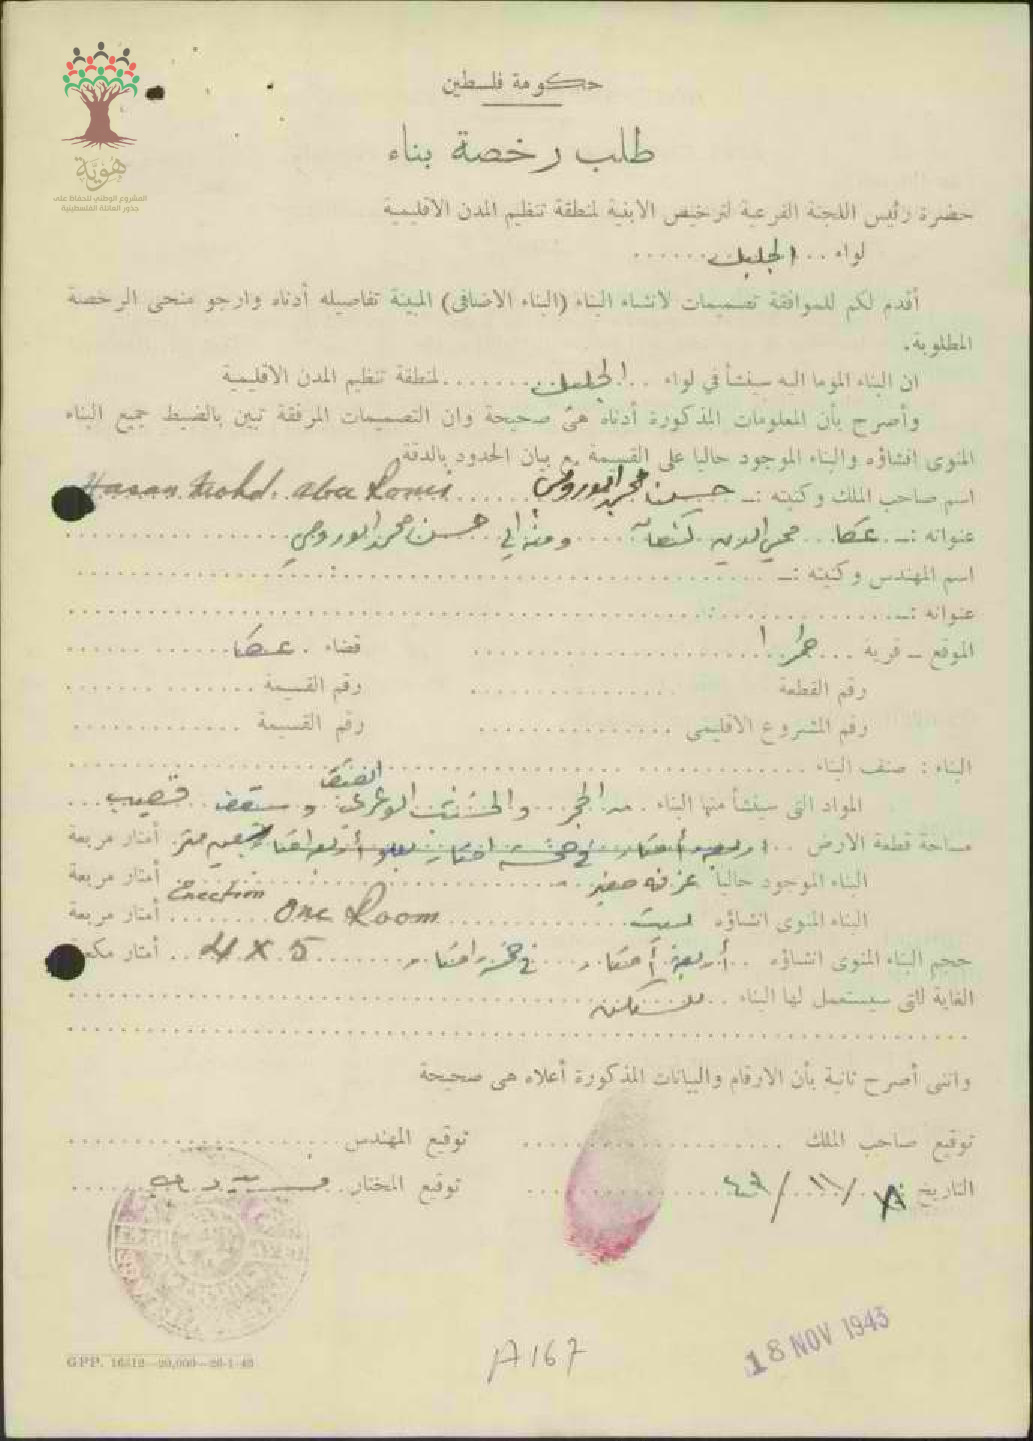 هُويَّة
المشروع الوطني للحفاظ على
جذور العائلة الفلسطينية
حكومة فلسطين
طلب رخصة بناء
حضرة رئيس اللجنة الفرعية لترخيص الابنية لمنطقة تنظيم المدن الاقليمية
لواء الجليل
أقدم لكم للموافقة تصميمات لانشاء البناء (البناء الاضافى) المبينة تفاصيله أدناه وارجو منحى الرخصة
المطلوبة.
ان البناء الموما اليه سينشأ في لواء الجليل لمنطقة تنظيم المدن الاقليمية
وأصرح بأن المعلومات المذكورة أدناه هىّ صحيحة وان التصميمات المرفقة تبين بالضبط جميع البناء
المنوى انشاؤه والبناء الموجود حاليا على القسيمة مع بيان الحدود بالدقة
اسم صاحب الملك وكنيته :ـ حسن محمد Hasan Mohd. abu
عنوانه :ـ عكا محي الدين ومنه الى حسن محمد
اسم المهندس وكنيته :ـ
عنوانه :ـ
الموقع ـ قرية قضاء عكا
رقم القطعة رقم القسيمة
رقم المشروع الاقليمى رقم القسيمة
البناء : صنف البناء
المواد التى سينشأ منها البناء من الحجر والخشب وسقف قصيب
مساحة قطعة الارض أمتار مربعة
البناء الموجود حالياً غرفه صغير أمتار مربعة
البناء المنوى انشاؤه بيت One Room Erection أمتار مربعة
حجم البناء المنوى انشاؤه أربعة أمتار في خمسة امتار 4 X 5 أمتار مكعبة
الغاية التى سيستعمل لها البناء للسكن
واننى أصرح ثانية بأن الارقام والبيانات المذكورة أعلاه هى صحيحة
توقيع صاحب الملك توقيع المهندس
التاريخ ١٨/١١/٤٣ توقيع المختار
GPP. 16312—20,000—26-1-43
A167
18 NOV 1943